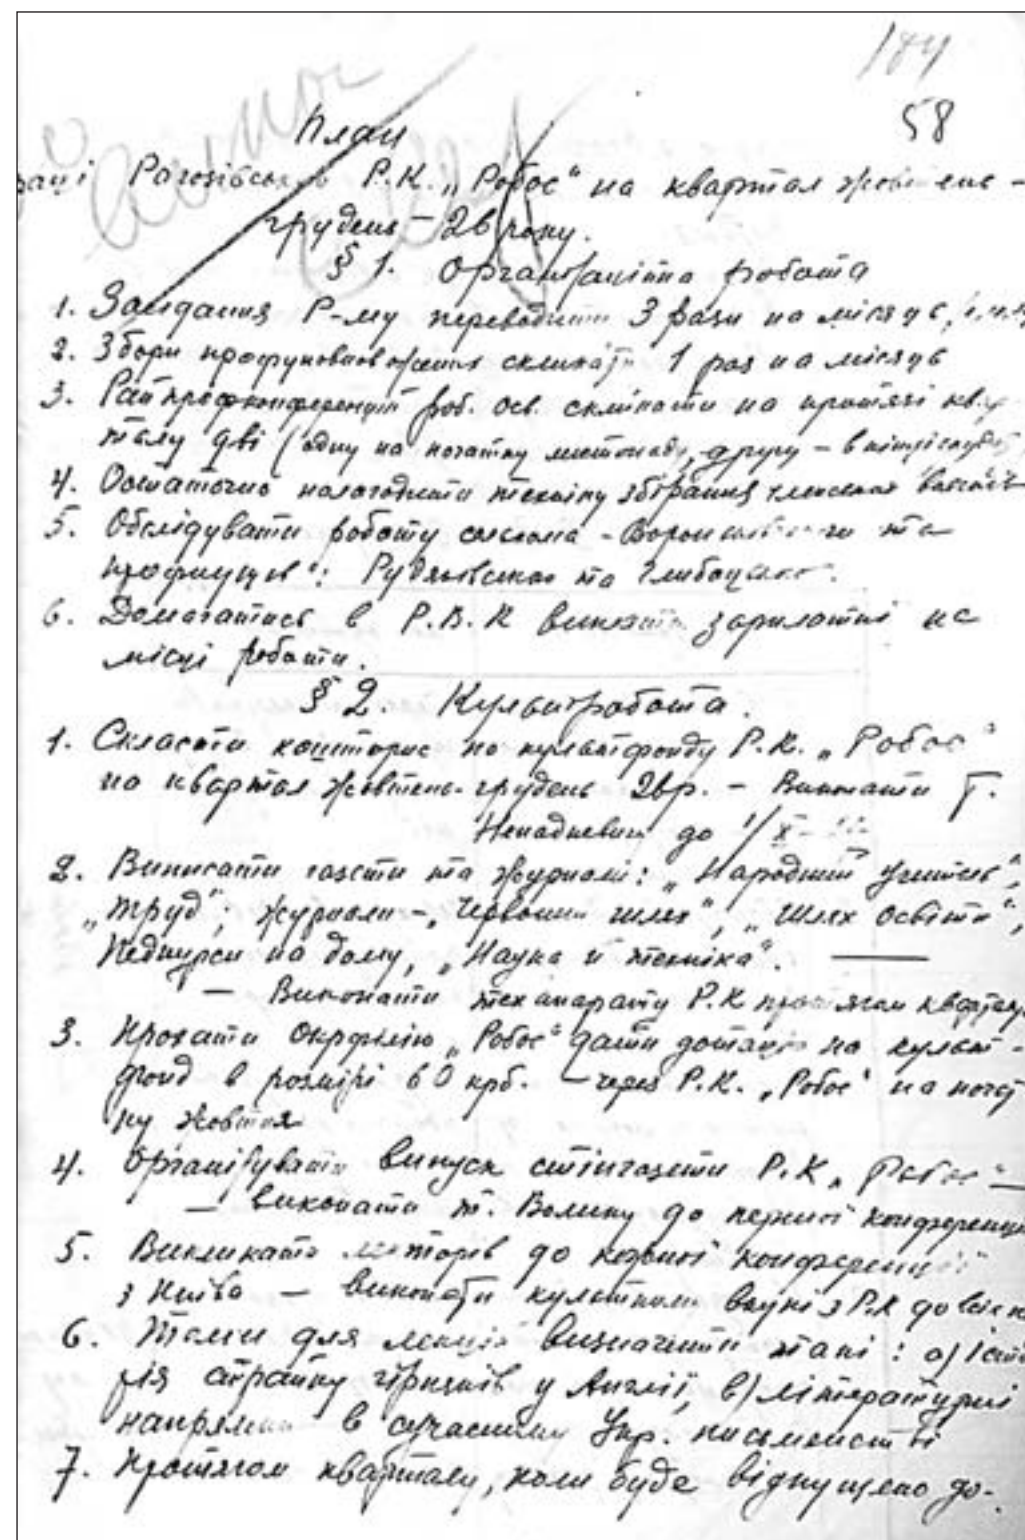 184
58
План
праці Рогозівського Р.К. „Робос“ на квартал жовтень –
грудень – 26 року.
§ 1. Організаційна робота
1. Засідання Р-му переводити 3 рази на місяць
2. Збори профуповноважених скликати 1 раз на місяць
3. Райпрофконференції роб. осв. скликати на протязі квар-
талу дві (одну на початку листопаду, другу – в кінці грудня
4. Остаточно налагодити техніку збірання членских
5. Обслідувати роботу та
: та
6. Домагатись в Р.В.К виплати зарплатні на
місці роботи.
§ 2. Культробота.
1. Скласти кошторис по культфонду Р.К. „Робос“
на квартал жовтень-грудень 26р. – Виконати т.
до 1/X-
2. Виписати газети та журнали: „Народний Учитель“,
„Труд“; журнали –„Червоний шлях“, „Шлях Освіти“,
Педкурси на дому, „Наука й техніка“. —
– Виконати техапарату Р.К протягом кварталу.
3. Прохати Окрфілію „Робос“ дати дотацію на культ-
фонд в розмірі 60 крб. – через Р.К. „Робос“ на почат-
ку жовтня
4. Організувати випуск стінгазети Р.К „Робос“ –
– виконати т. Волину до першої конференції
5. Викликать лекторів до кожної конференції
з Київа – виконати культкому вкупі з Р.К до
6. Теми для лекцій визначити такі: а) Істо-
рія страйку гірників у Англії, в) літературні
напрямки в сучасному Укр. письменстві
7. Протягом кварталу, коли буде відпущено до-